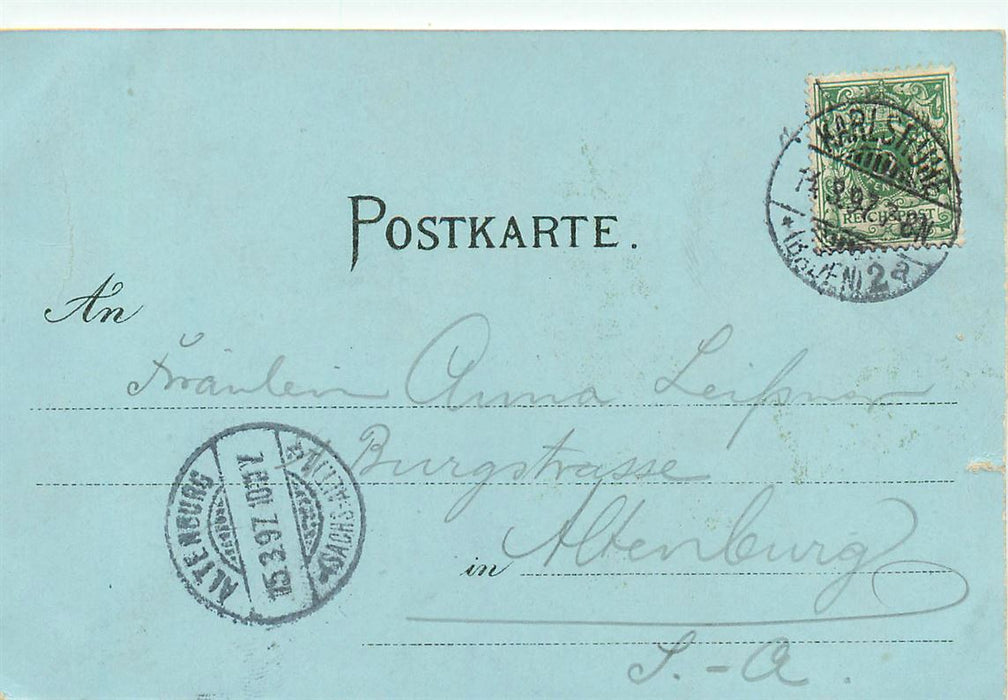 POSTKARTE.
KARLSRUHE
14.3.97
(BADEN) 2a
REICHSPOST
An
Fräulein Anna Leißner
Burgstrasse
in Altenburg
S.-A.
ALTENBURG
15.3.97. 10